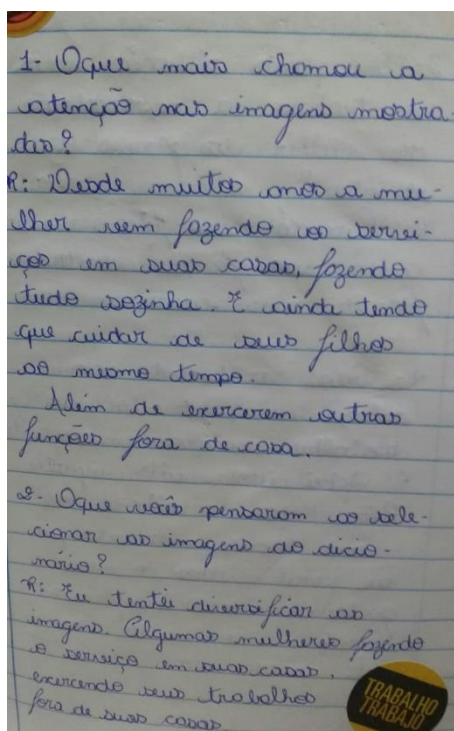 1- Oque mais chamou a
atenção nas imagens mostra-
das?
R: Desde muitos anos a mu-
lher vem fazendo os servi-
ços em suas casas, fazendo
tudo sozinha. E ainda tendo
que cuidar de seus filhos
ao mesmo tempo.
Além de exercerem outras
funções fora de casa.
2- Oque vocês pensaram ao sele-
cionar as imagens do dicio-
nário?
R: Eu tentei diversificar as
imagens. Algumas mulheres fazendo
o serviço em suas casas.
exercendo seus trabalhos
fora de suas casas
TRABALHO
TRABAJO